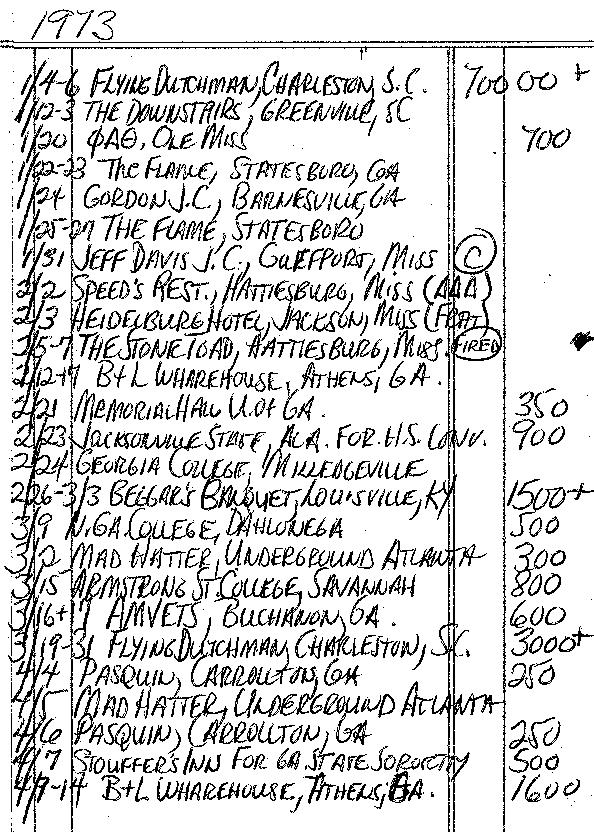 1973
1/4-6 FLYING DUTCHMAN, CHARLESTON, S.C. 700 00 +
1/12-3 THE DOWNSTAIRS, GREENVILLE, SC
1/20 ΦΑΘ, OLE MISS 700
1/22-23 THE FLAME, STATESBORO, GA
1/24 GORDON J.C., BARNESVILLE, GA
1/25-27 THE FLAME, STATESBORO
1/31 JEFF DAVIS J.C., GULFPORT, MISS C
2/2 SPEED'S REST., HATTIESBURG, MISS (ΔΔΔ)
2/3 HEIDELBURG HOTEL, JACKSON, MISS (FRAT)
2/5-7 THE STONE TOAD, HATTIESBURG, MISS. FIRED
2/12-17 B+L WHAREHOUSE, ATHENS, GA.
2/21 MEMORIAL HALL U. of GA. 350
2/23 JACKSONVILLE STATE, ALA. FOR H.S. CONV. 900
2/24 GEORGIA COLLEGE, MILLEDGEVILLE
2/26-3/3 BEGGAR'S BANQUET, LOUISVILLE, KY 1500+
3/9 N. GA COLLEGE, DAHLONEGA 500
3/2 MAD HATTER, UNDERGROUND ATLANTA 300
3/15 ARMSTRONG ST. COLLEGE, SAVANNAH 800
3/16+17 AMVETS, BUCHANON, GA. 600
3/19-31 FLYING DUTCHMAN, CHARLESTON, S.C. 3000+
4/4 PASQUIN, CARROLLTON, GA 250
4/5 MAD HATTER, UNDERGROUND ATLANTA
4/6 PASQUIN, CARROLLTON, GA 250
4/7 STOUFFER'S INN FOR GA STATE SORORITY 500
4/9-14 B+L WHAREHOUSE, ATHENS, GA. 1600